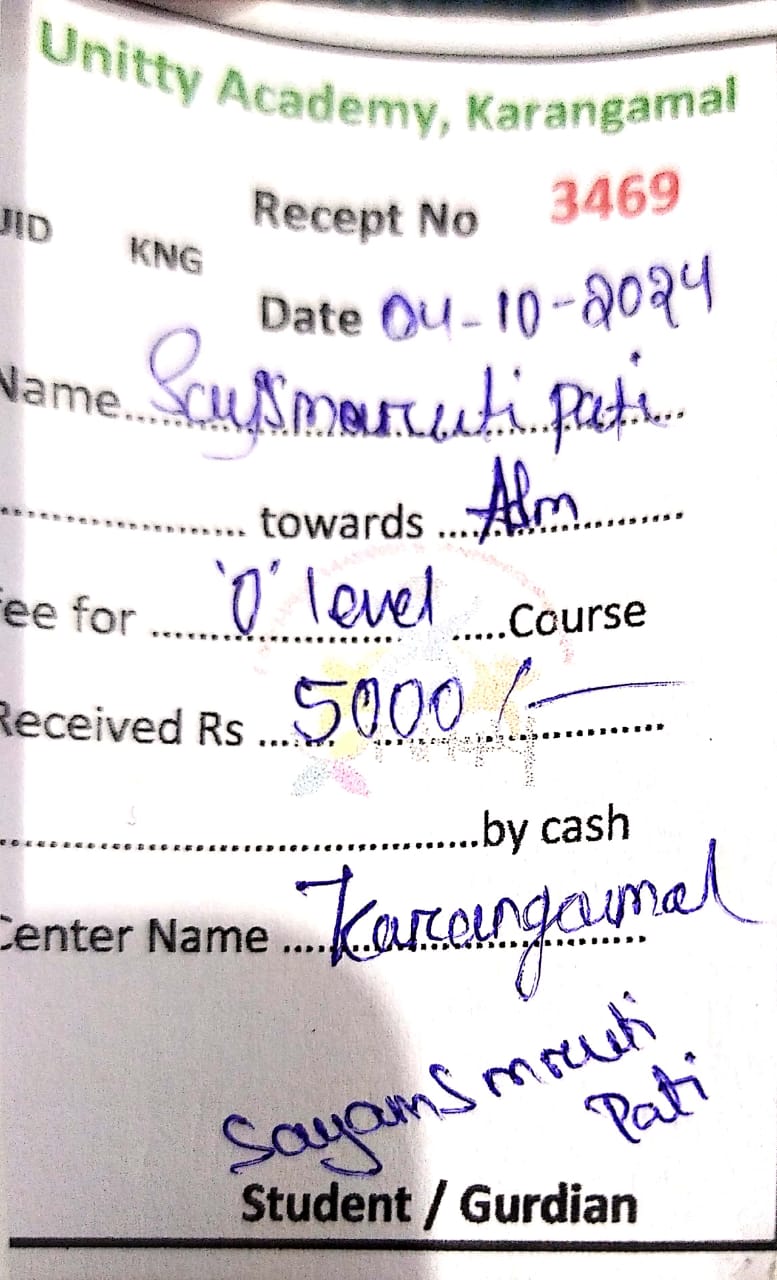 Unitty Academy, Karangamal
Recept No 3469
UID KNG
Date 04-10-2024
Name.......... pati...
.................. towards ....Adm............
Fee for ......'O' level......Course
Received Rs ......5000/-............
....................................by cash
Center Name ....Karangamal........
Sayamsmruti
Pati
Student / Gurdian